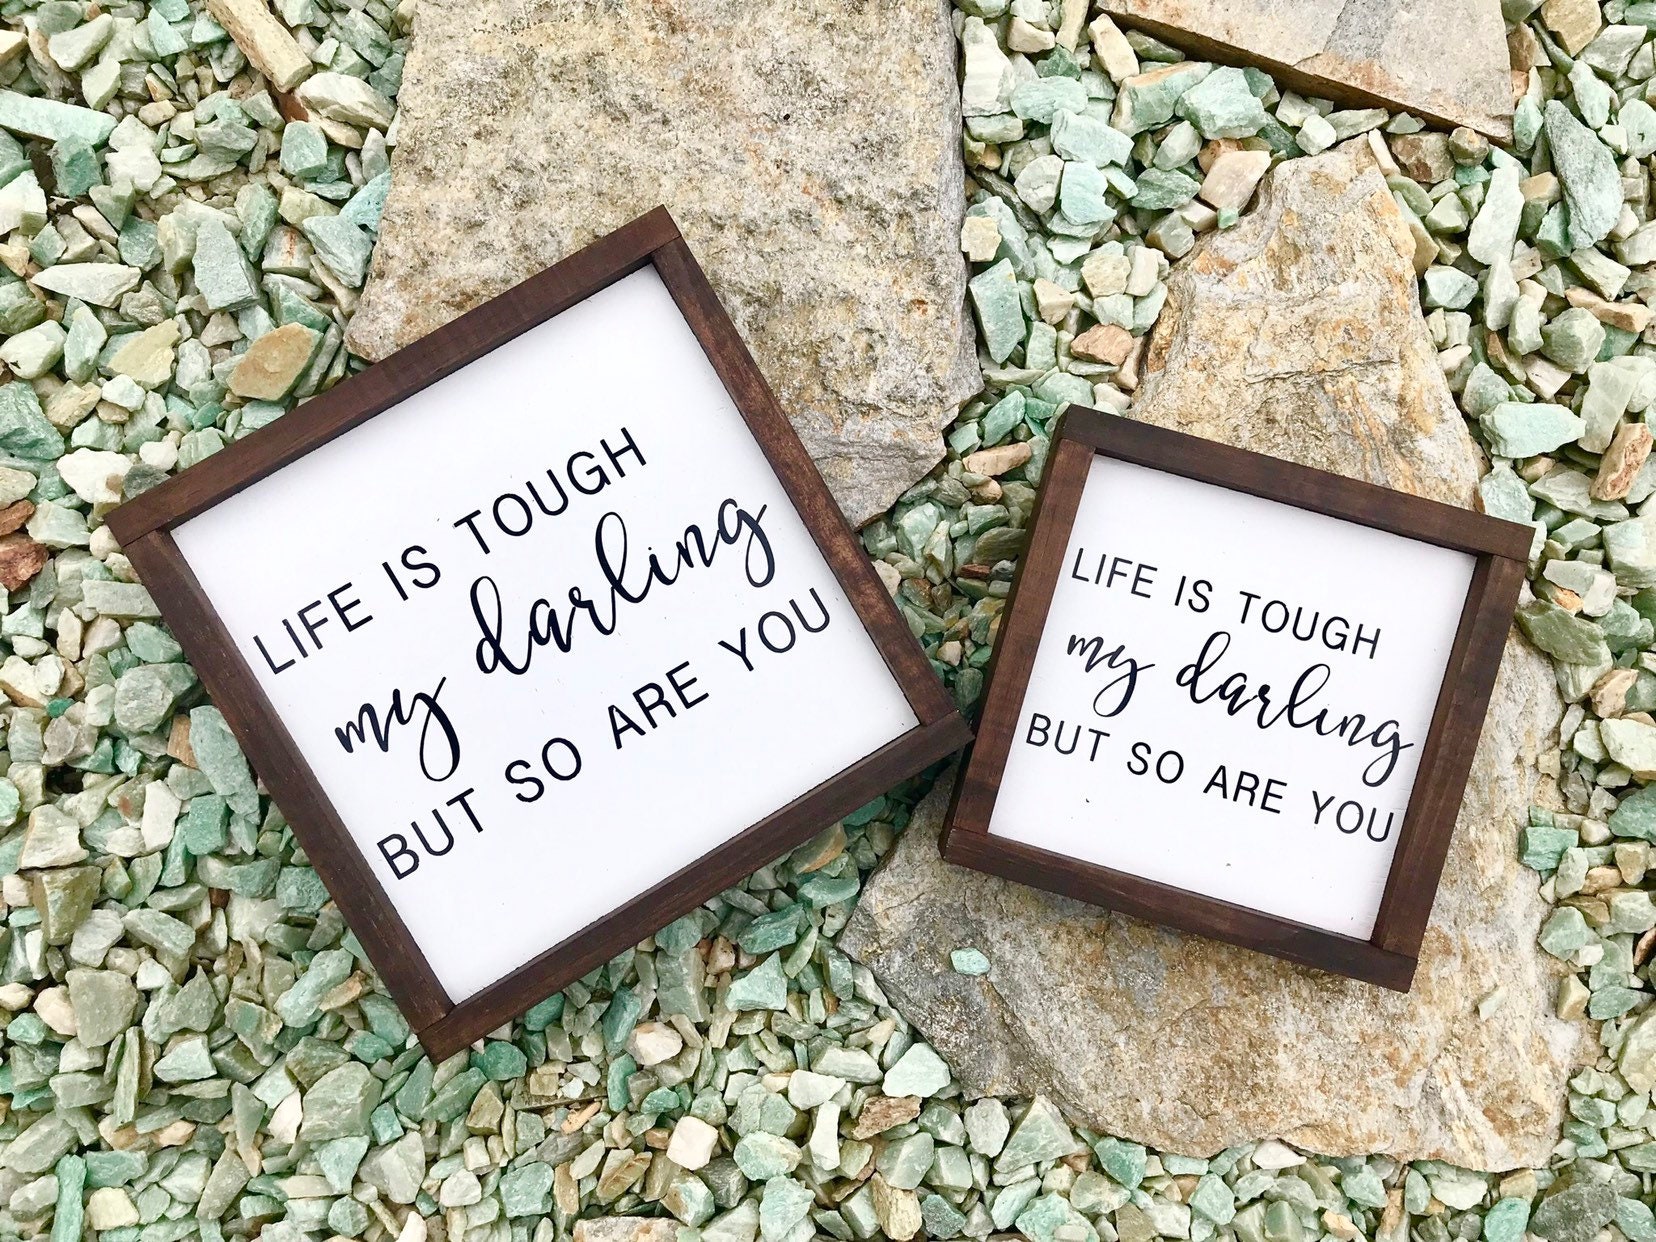 LIFE IS TOUGH
my darling
BUT SO ARE YOU
LIFE IS TOUGH
my darling
BUT SO ARE YOU